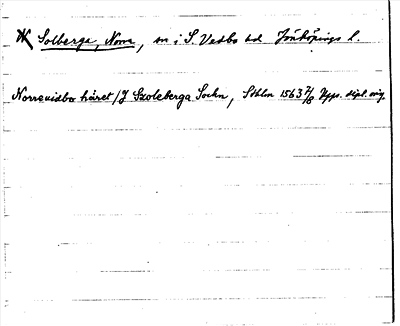 Solberga, Norra, sn i S. Vedbo hd Jönköpings l.
Norrevidbo häret / J Szoleberga Sockn, Sthlm 1563 7/8 Upps. dipl. orig.